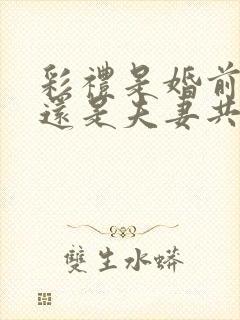 彩禮是婚前
還是夫妻共
雙生水蟒